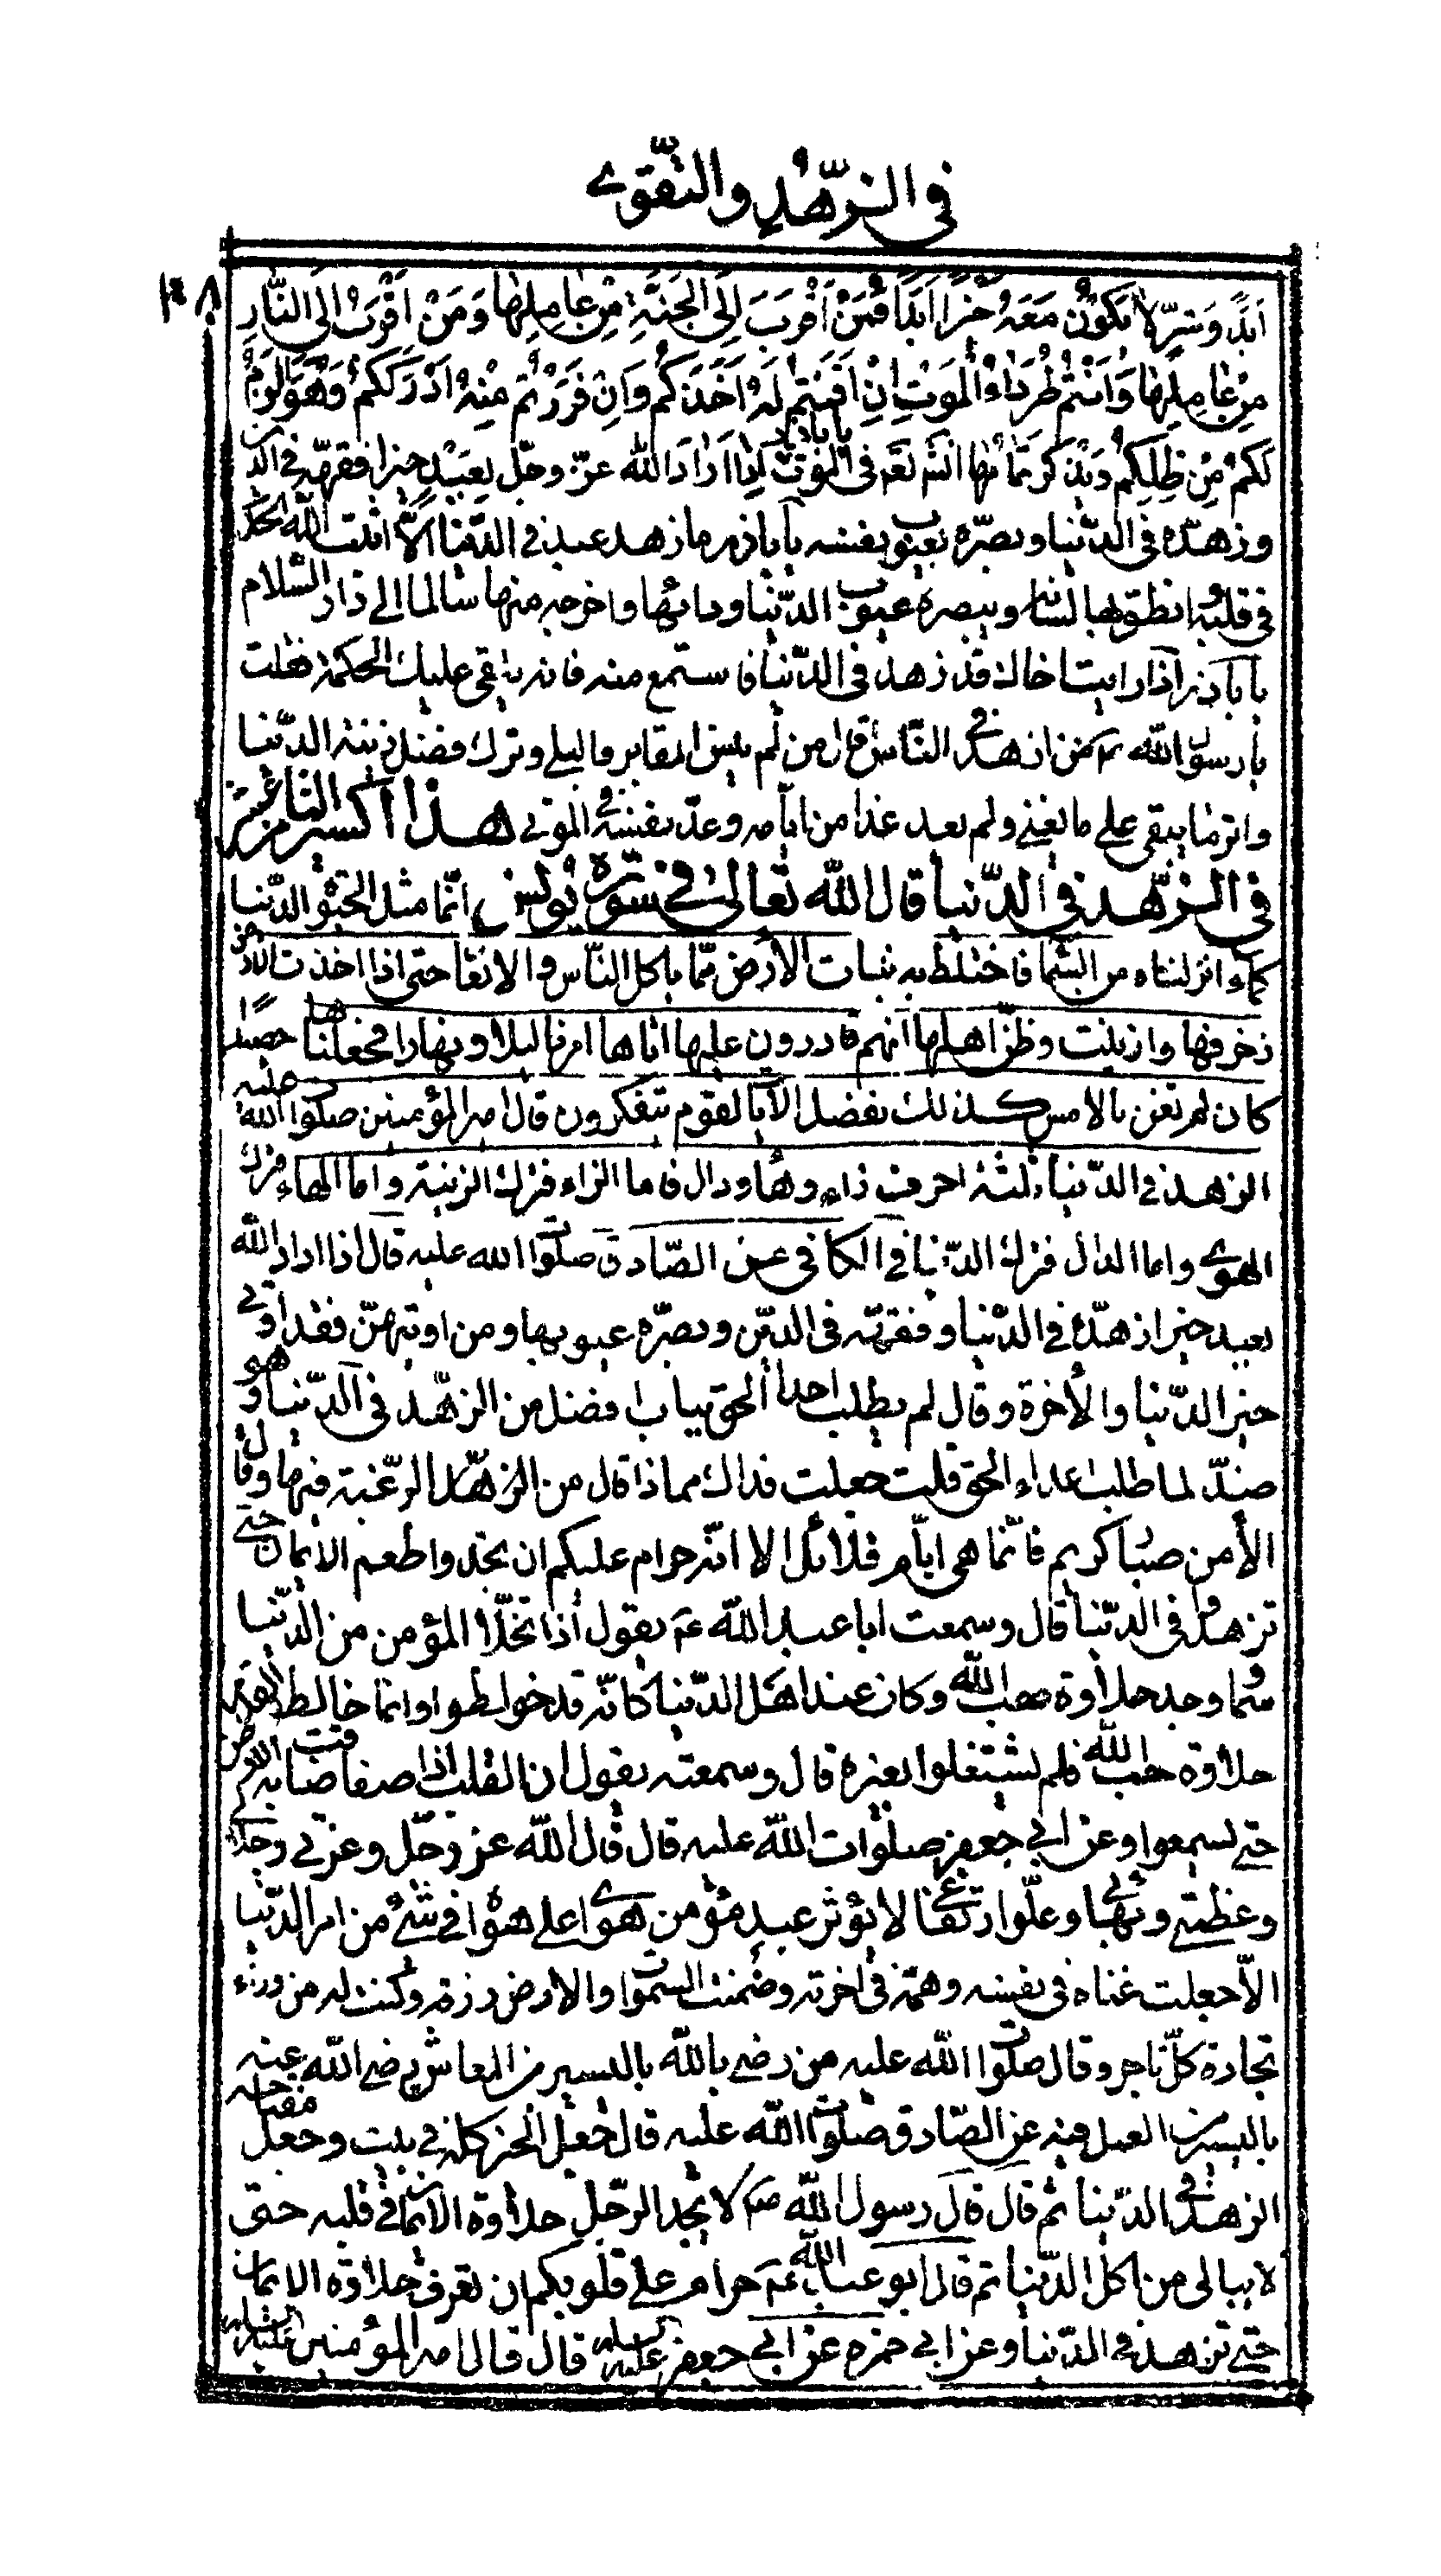 في الزهد والتقوى
١٠٨
ابدًا وشر لا يكون معه خيرًا ابدًا فمن اقرب الى الجنة من عاملها ومن اقرب الى النار
من عاملها وانتم طرداء الموت ان اقمتم له اخذكم وان فررتم منه ادرككم وهو الزم
لكم من ظلكم اذا اراد الله عز وجل بعبد خيرا فقهه في الدين
وزهده في الدنيا وبصره بعيوب نفسه يا باذر ما زهد عبد في الدنيا الا اثبت الله الحكمة
في قلبه وانطق بها لسانه ويبصره عيوب الدنيا ودائها واخرجه منها سالما الى دار السلام
يا باذر اذا رايت اخاك قد زهد في الدنيا فاستمع منه فانه يلقي عليك الحكمة فقلت
يا رسول الله من ازهد الناس قال من لم ينس المقابر والبلى وترك فضل زينة الدنيا
واثر ما يبقى على ما يفنى ولم يعد غدا من ايامه وعد نفسه في الموتى هذا اكسير الناس من
في الزهد في الدنيا قال الله تعالى في سورة يونس انما مثل الحيوة الدنيا
كماء انزلناه من السماء فاختلط به نبات الارض مما ياكل الناس والانعام حتى اذا اخذت الارض
زخرفها وازينت وظن اهلها انهم قادرون عليها اتاها امرنا ليلا او نهارا فجعلناها حصيدا
كان لم تغن بالامس كذلك نفصل الايات لقوم يتفكرون قال امير المؤمنين صلوات الله عليه
الزهد في الدنيا ثلثة احرف زاء وهاء ودال فاما الزاء فترك الزينة واما الهاء فترك
الهوى واما الدال فترك الدنيا في الكافي عن الصادق صلوات الله عليه قال اذا اراد الله
بعبد خيرا زهده في الدنيا وفقهه في الدين وبصره عيوبها ومن اوتيهن فقد اوتي
خير الدنيا والاخرة وقال لم يطلب احد الحق بباب افضل من الزهد في الدنيا وهو
ضد لما طلب اعداء الحق قلت جعلت فداك مماذا قال من الرغبة فيها وقال
الا من صبار كريم فانما هي ايام قلائل الا انه حرام عليكم ان تجدوا طعم الايمان حتى
تزهدوا في الدنيا قال وسمعت ابا عبد الله ع يقول اذا تخلا المؤمن من الدنيا
سما ووجد حلاوة حب الله وكان عند اهل الدنيا كانه قد خولط وانما خالط القوم
حلاوة حب الله فلم يشتغلوا بغيره قال وسمعته يقول ان القلب اذا صفا ضاقت به الارض
حتى يسمو وعن ابي جعفر صلوات الله عليه قال قال الله عز وجل وعزتي وجلالي
وعظمتي وبهائي وعلو ارتفاعي لا يؤثر عبد مؤمن هواي على هواه في شئ من امر الدنيا
الا جعلت غناه في نفسه وهمته في اخرته وضمنت السموات والارض رزقه وكنت له من وراء
تجارة كل تاجر وقال صلوات الله عليه من رضي بالله باليسير من المعاش رضي الله عنه
باليسير من العمل عن الصادق صلوات الله عليه قال جعل الخير كله في بيت وجعل مفتاحه
الزهد في الدنيا ثم قال قال رسول الله ص لا يجد الرجل حلاوة الايمان في قلبه حتى
لا يبالي من اكل الدنيا ثم قال ابو عبد الله ع حرام على قلوبكم ان تعرف حلاوة الايمان
حتى تزهد في الدنيا وعن ابي حمزه عن ابي جعفر عليه السلام قال قال امير المؤمنين عليه السلام